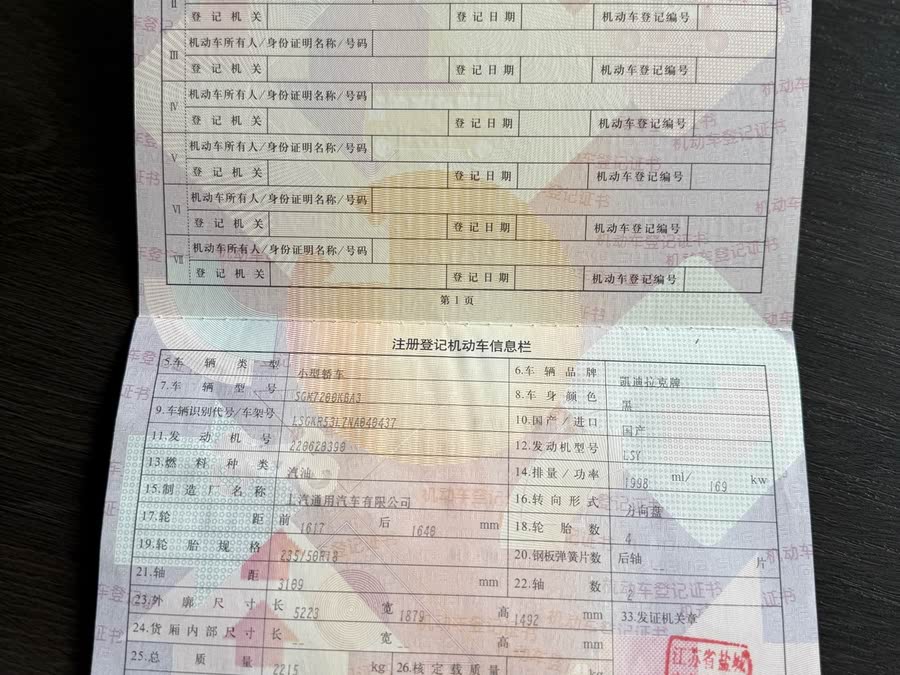 II 登记机关 登记日期 机动车登记编号
机动车所有人/身份证明名称/号码
III
登记机关 登记日期 机动车登记编号
机动车所有人/身份证明名称/号码
IV
登记机关 登记日期 机动车登记编号
机动车所有人/身份证明名称/号码
V
登记机关 登记日期 机动车登记编号
机动车所有人/身份证明名称/号码
VI
登记机关 登记日期 机动车登记编号
机动车所有人/身份证明名称/号码
VII
登记机关 登记日期 机动车登记编号
第1页
注册登记机动车信息栏
5.车辆类型 小型轿车 6.车辆品牌 凯迪拉克牌
7.车辆型号 SGM7200KBA3 8.车身颜色 黑
9.车辆识别代号/车架号 10.国产/进口 国产
11.发动机号 220620390 12.发动机型号 LSY
13.燃料种类 汽油 14.排量/功率 1998 ml/ 169 kw
15.制造厂名称 上汽通用汽车有限公司 16.转向形式 方向盘
17.轮距 前 1617 后 1640 mm 18.轮胎数 4
19.轮胎规格 235/50R18 20.钢板弹簧片数 后轴 -- 片
21.轴距 3109 mm 22.轴数 2
23.外廓尺寸 长 5223 宽 1879 高 1492 mm 33.发证机关章
24.货厢内部尺寸 长 -- 宽 -- 高 -- mm
25.总质量 2215 kg 26.核定载质量 -- kg
江苏省盐城